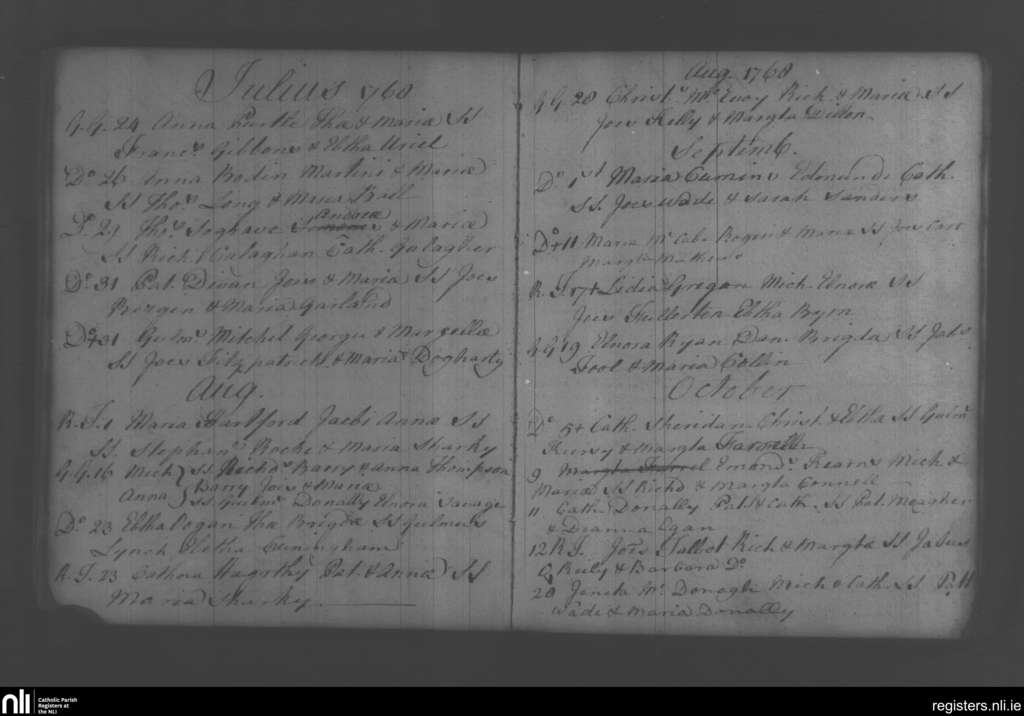 Julius 1768
G.G. 24 Anna Tha & Maria SS
Franc. Gibbons & Eltha Uriel
Do 26 Anna Martini & Maria
SS Thos Long & Bell
Do 27 Thos Andreæ & Maria
SS Rich Calaghan Cath. Galagher
Do 31 Pat. Divan Joes & Maria SS Joes
Bergen & Maria Garland
Do 31 Gulms Mitchel Georgii &
SS Joes Fitzpatrick & Maria Dogharty
Aug.
R.J. 1 Maria Hartford Jacbi Annæ SS
SS. Stephans Rocke & Maria Sharky
G.G. 16 Mich SS Richds Barry & Anna Thompson
Barry Joes & Maria
Anna SS Gulms Donally Elnora Savage
Do 23 Eltha Dogan Tha Brigta SS Gulmus
Lynch Eltha Cuningham
R.J. 23 Hagerthy Pat. & Anna SS
Maria Sharky.
Aug. 1768
G.G. 28 Christr Mc Evoy Rich & Maria SS
Joes Kelly & Margta Dillon
Septimb.
Do 1st Maria Cumins Edmundi Cath.
SS. Joes Wade & Sarah Sanders
Do 11 Maria Mc Cabe Rogeri & Maria SS Joes Carr
Margta Mathews
R.J. 17 Lidia Gregan Mich. Elnoræ SS
Joes Fullerton Eltha Byrn
G.G. 19 Elnora Ryan Dan. Brigta SS Jabs
Tool & Maria Collin
October
Do 5 Cath. Sheridan Christ. & Eltha SS Gulm
& Margta Farrell
9 Emond. Kearns Mich &
Maria SS Richd & Margta Connell
11 Cath Donally Pat & Cath. SS Pat. Meagher
& Dianna Egan
12 R.J. Joes Talbot Rich & Margta SS Jabus
Reily & Barbara Do
20 Mc Donagh Mich & Cath. SS
Wade & Maria Donally
nli
Catholic Parish
Registers at
the NLI
registers.nli.ie